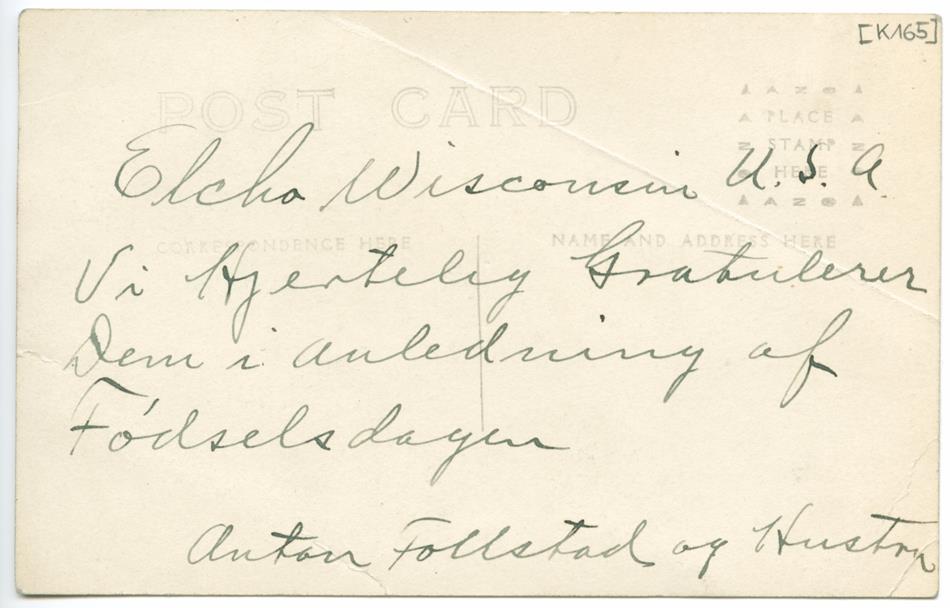 [K165]
POST CARD
AZO
PLACE
STAMP
HERE
AZO
Elcho Wisconsin U.S.A
CORRESPONDENCE HERE
NAME AND ADDRESS HERE
Vi Hjertelig Gratulerer
Dem i anledning af
Fødselsdagen
Anton Follstad og Hustru